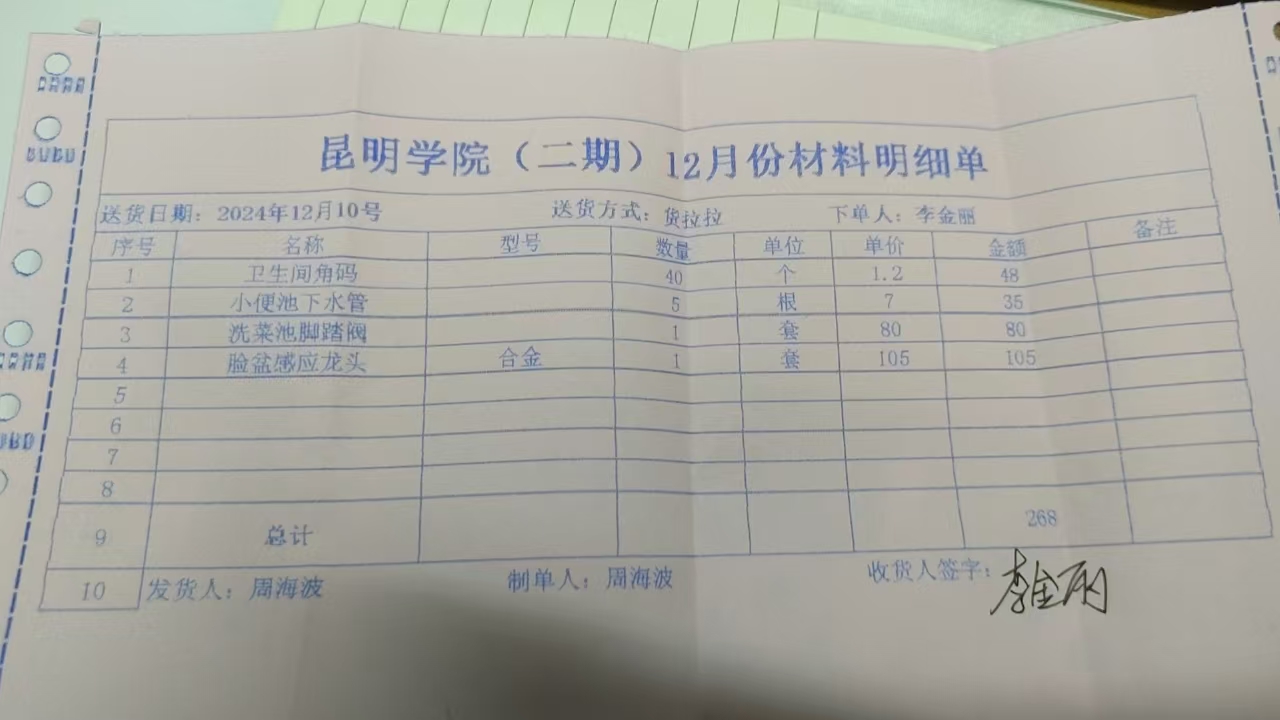 昆明学院（二期）12月份材料明细单
送货日期：2024年12月10号 送货方式：货拉拉 下单人：李金丽
序号 名称 型号 数量 单位 单价 金额 备注
1 卫生间角码 40 个 1.2 48
2 小便池下水管 5 根 7 35
3 洗菜池脚踏阀 1 套 80 80
4 脸盆感应龙头 合金 1 套 105 105
5
6
7
8
9 总计 268
10 发货人：周海波 制单人：周海波 收货人签字：李金丽